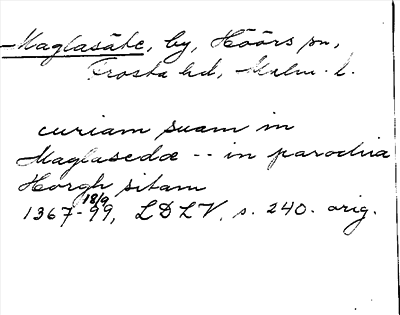 Maglasäte, by, Höörs sn,
Frosta hd, Malm. l.
curiam suam in
Maglasedæ -- in parochia
Horgh sitam
1367-18/9 99, LDLV, s. 240. orig.